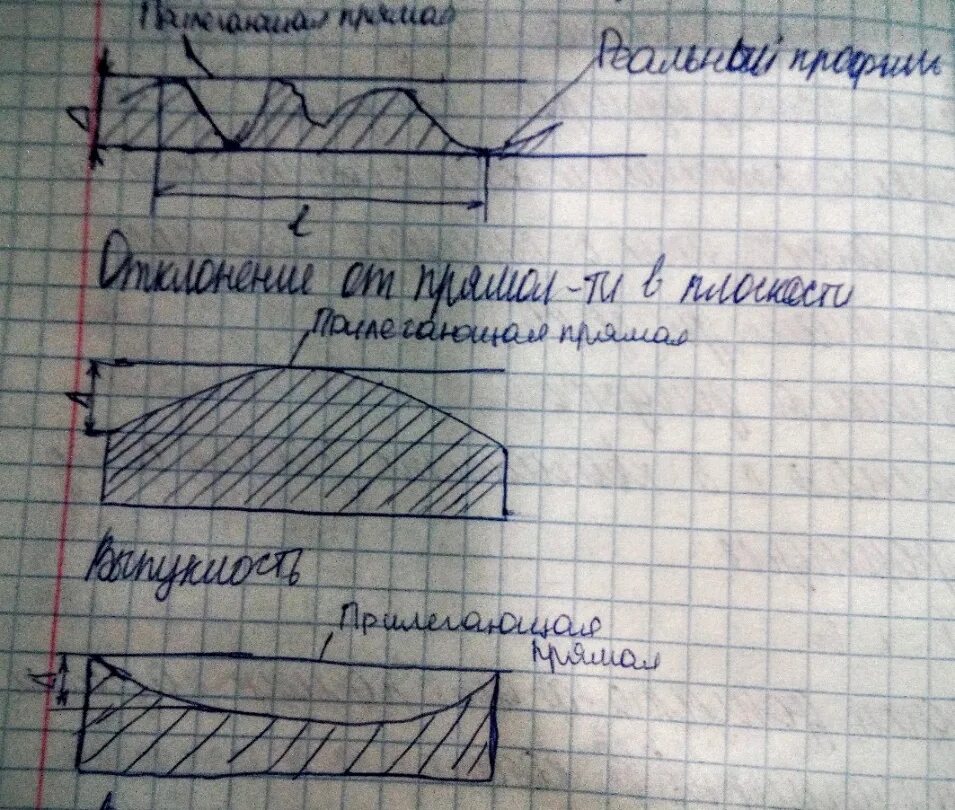 Прилегающая прямая
Реальный профиль
Δ
l
Отклонение от прямол-ти в плоскости
Прилегающая прямая
Δ
Выпуклость
Прилегающая
прямая
Δ